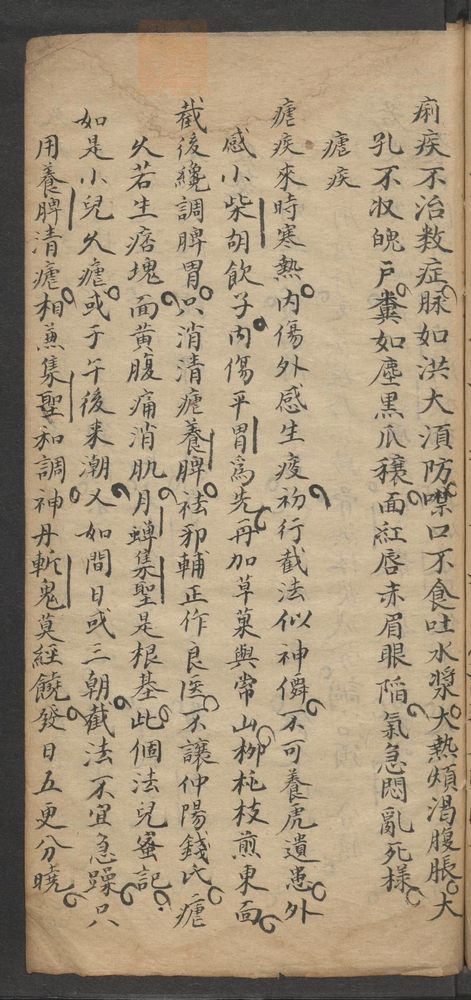 痢疾不治数症脉如洪大湏防噤口不食吐水漿大熱煩渴腹脹大
孔不収魄戸糞如塵黒爪穣面紅唇赤眉眼陥氣急悶亂死様
瘧疾
瘧疾來時寒熱内傷外感生疫初行截法似神僊不可養虎遺患外
感小柴胡飲子内傷平胃爲先再加草菓與常山柳枝煎東面
截後纔調脾胃只消清瘧養脾祛邪輔正作良医不讓仲陽錢氏瘧
久若生痞塊面黄腹痛消肌月蟬集聖是根基此個法兒蜜記
如是小兒久瘧或于午後来潮又如間日或三朝截法不宜急躁只
用養脾清瘧相兼集聖和調神丹斬鬼莫經饒發日五更分曉